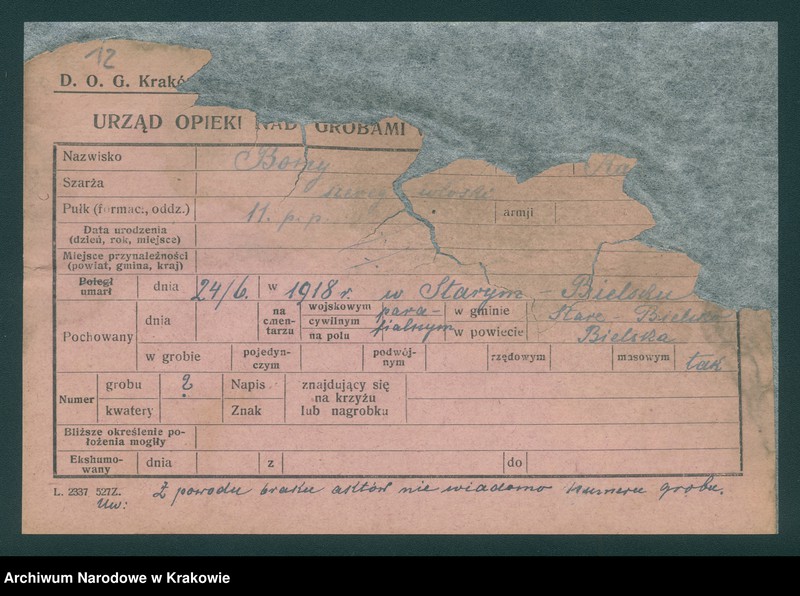 12
D. O. G. Krakó
URZĄD OPIEKI NAD GROBAMI
Nazwisko Bomy
Szarża szereg. włoski
Pułk (formac., oddz.) 11. p. p. armji
Data urodzenia
(dzień, rok, miejsce)
Miejsce przynależności
(powiat, gmina, kraj)
Poległ
umarł dnia 24/6. w 1918 r. w Starym - Bielsku
Pochowany dnia na cmen-tarzu wojskowym cywilnym na polu para-fialnym w gminie Stare - Bielsko
w powiecie Bielska
w grobie pojedyn-czym podwój-nym rzędowym masowym tak
Numer grobu ? Napis znajdujący się
kwatery Znak na krzyżu
lub nagrobku
Bliższe określenie po-
łożenia mogiły
Ekshumo-
wany dnia z do
L. 2337 527Z.
Uw: Z powodu braku aktów nie wiadomo numeru grobu.
Archiwum Narodowe w Krakowie